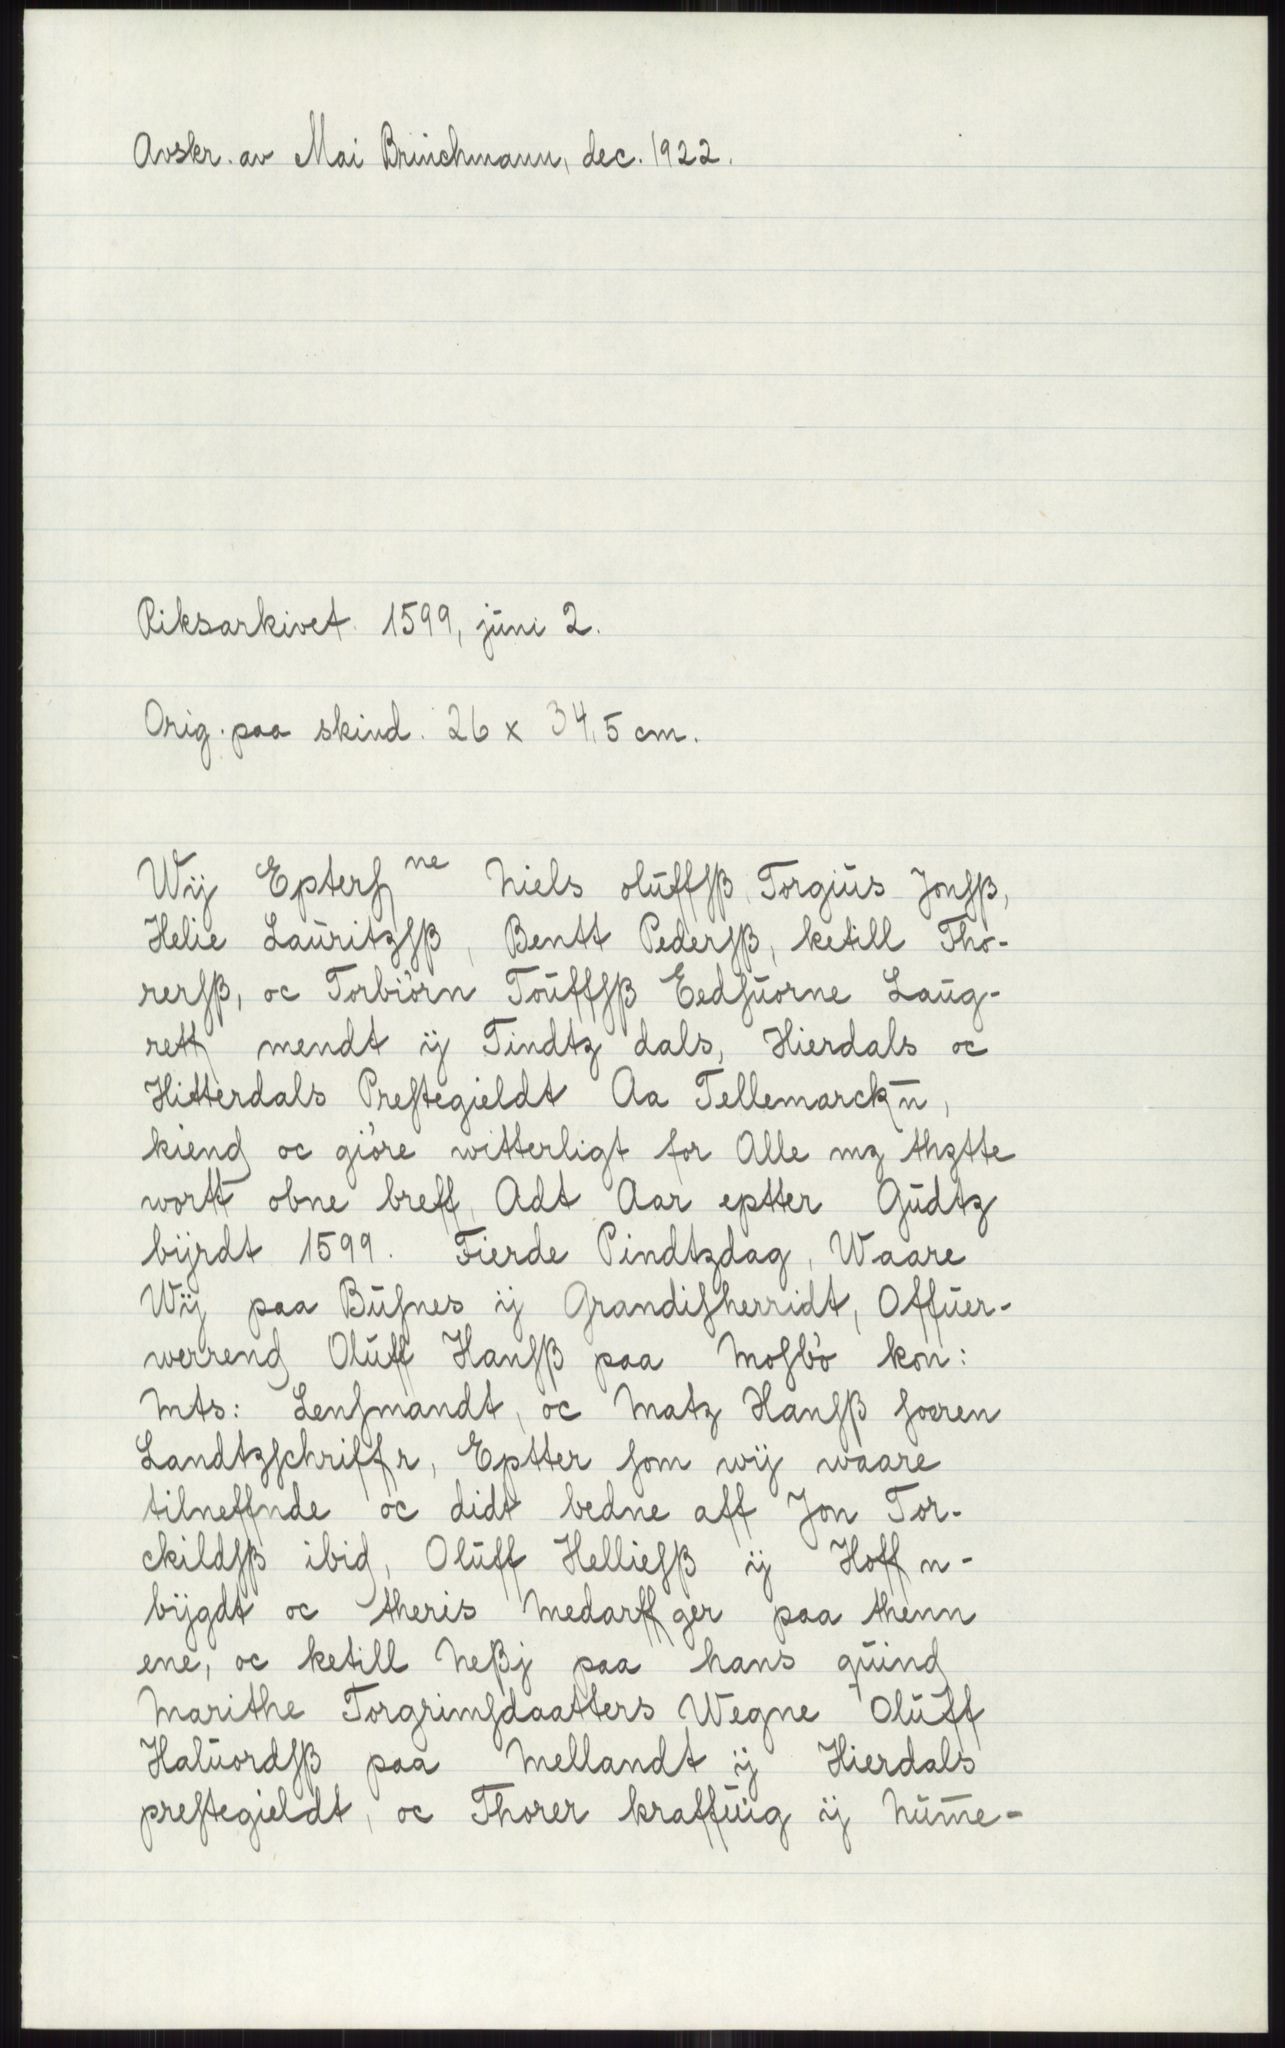 Avskr. av Mai Brinchmann, dec. 1922.
Riksarkivet. 1599, juni 2.
Orig. paa skind. 26 x 34,5 cm.
Wij Epterſ ne Niels oluffsß, Torgius Jonsß,
Helie Lauritzsß, Bentt Pedersß, ketill Tho-
rersß, oc Torbiörn Touffsß Eedsuorne Laug-
rett mendt ij Tindtz dals, Hierdals oc
Hitterdals Prestegieldt Aa Tellemarckn̄,
kiend oc giöre witterligt for Alle mz thztte
wortt obne breff, Adt Aar eptter Gudtz
bijrdt 1599. Fierde Pindtzdag, Waare
Wij paa Busnes ij Grandisherridt, Offuer-
werrend Oluff Hansß paa Mosbö kon:
Mts: Lensmandt, oc Matz Hansß soeren
Landtzschriffr, Eptter som wij waare
tilneffnde oc didt bedne aff Jon Tor-
ckildsß ibid, Oluff Helliesß ij Hoffn-
bijgdt oc theris Medarffger paa thenn
ene, oc ketill Neßj paa hans quind
Marithe Torgrimsdaatters Wegne Oluff
Haluordsß paa Mellandt ij Hierdals
prestegieldt, oc Thorer kraffuig ij Num̄e-